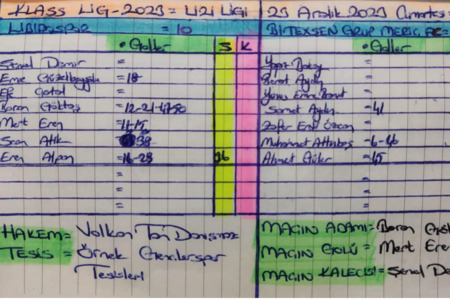 KLASS LİG-2023 = LİZİ LİGİ
23 Aralık 2023 Cumartesi
LİBİDOSPOR = 10
BİTEXSEN GRUP MERİÇ FC =
• Goller S K
• Goller
Şenal Demir =
Emre Güzelbeyoğlu = 18
Efe Gatal =
Boran Göktaş = 12-21-47-50
Mert Eren = 11-15
38
Eren Alpan = 16-23 36
Berat Aydın =
Yunus Emre =
Samet Aydın = 41
Zafer Eren Özcan =
Muhammet Altınbaş = 6-46
Ahmet Güler = 45
HAKEM = Volkan Tan Danışmaz
TESİS = Örnek Gençlerspor
Tesisleri
MAÇIN ADAMI = Boran
MAÇIN GOLÜ = Mert Eren
MAÇIN KALECİSİ = Şenal